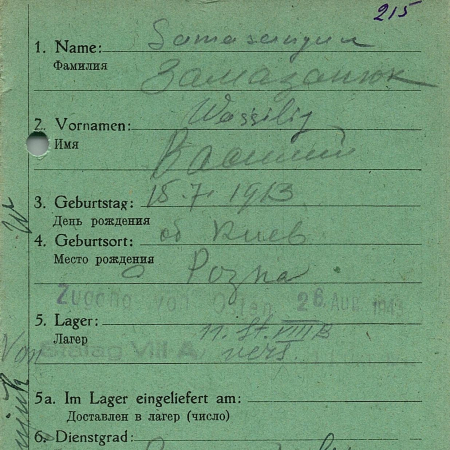 215
1. Name:
Фамилия
Замазанюк
2. Vornamen: Wassilij
Имя
Василий
3. Geburtstag: 15.7.1913
День рождения
4. Geburtsort: об Киев
Место рождения
с Розна
Zugang von Osten 26. AUG. 1943
5. Lager:
Лагер
Stalag VIII A
vers.
Von
5a. Im Lager eingeliefert am:
Доставлен в лагер (число)
6. Dienstgrad: